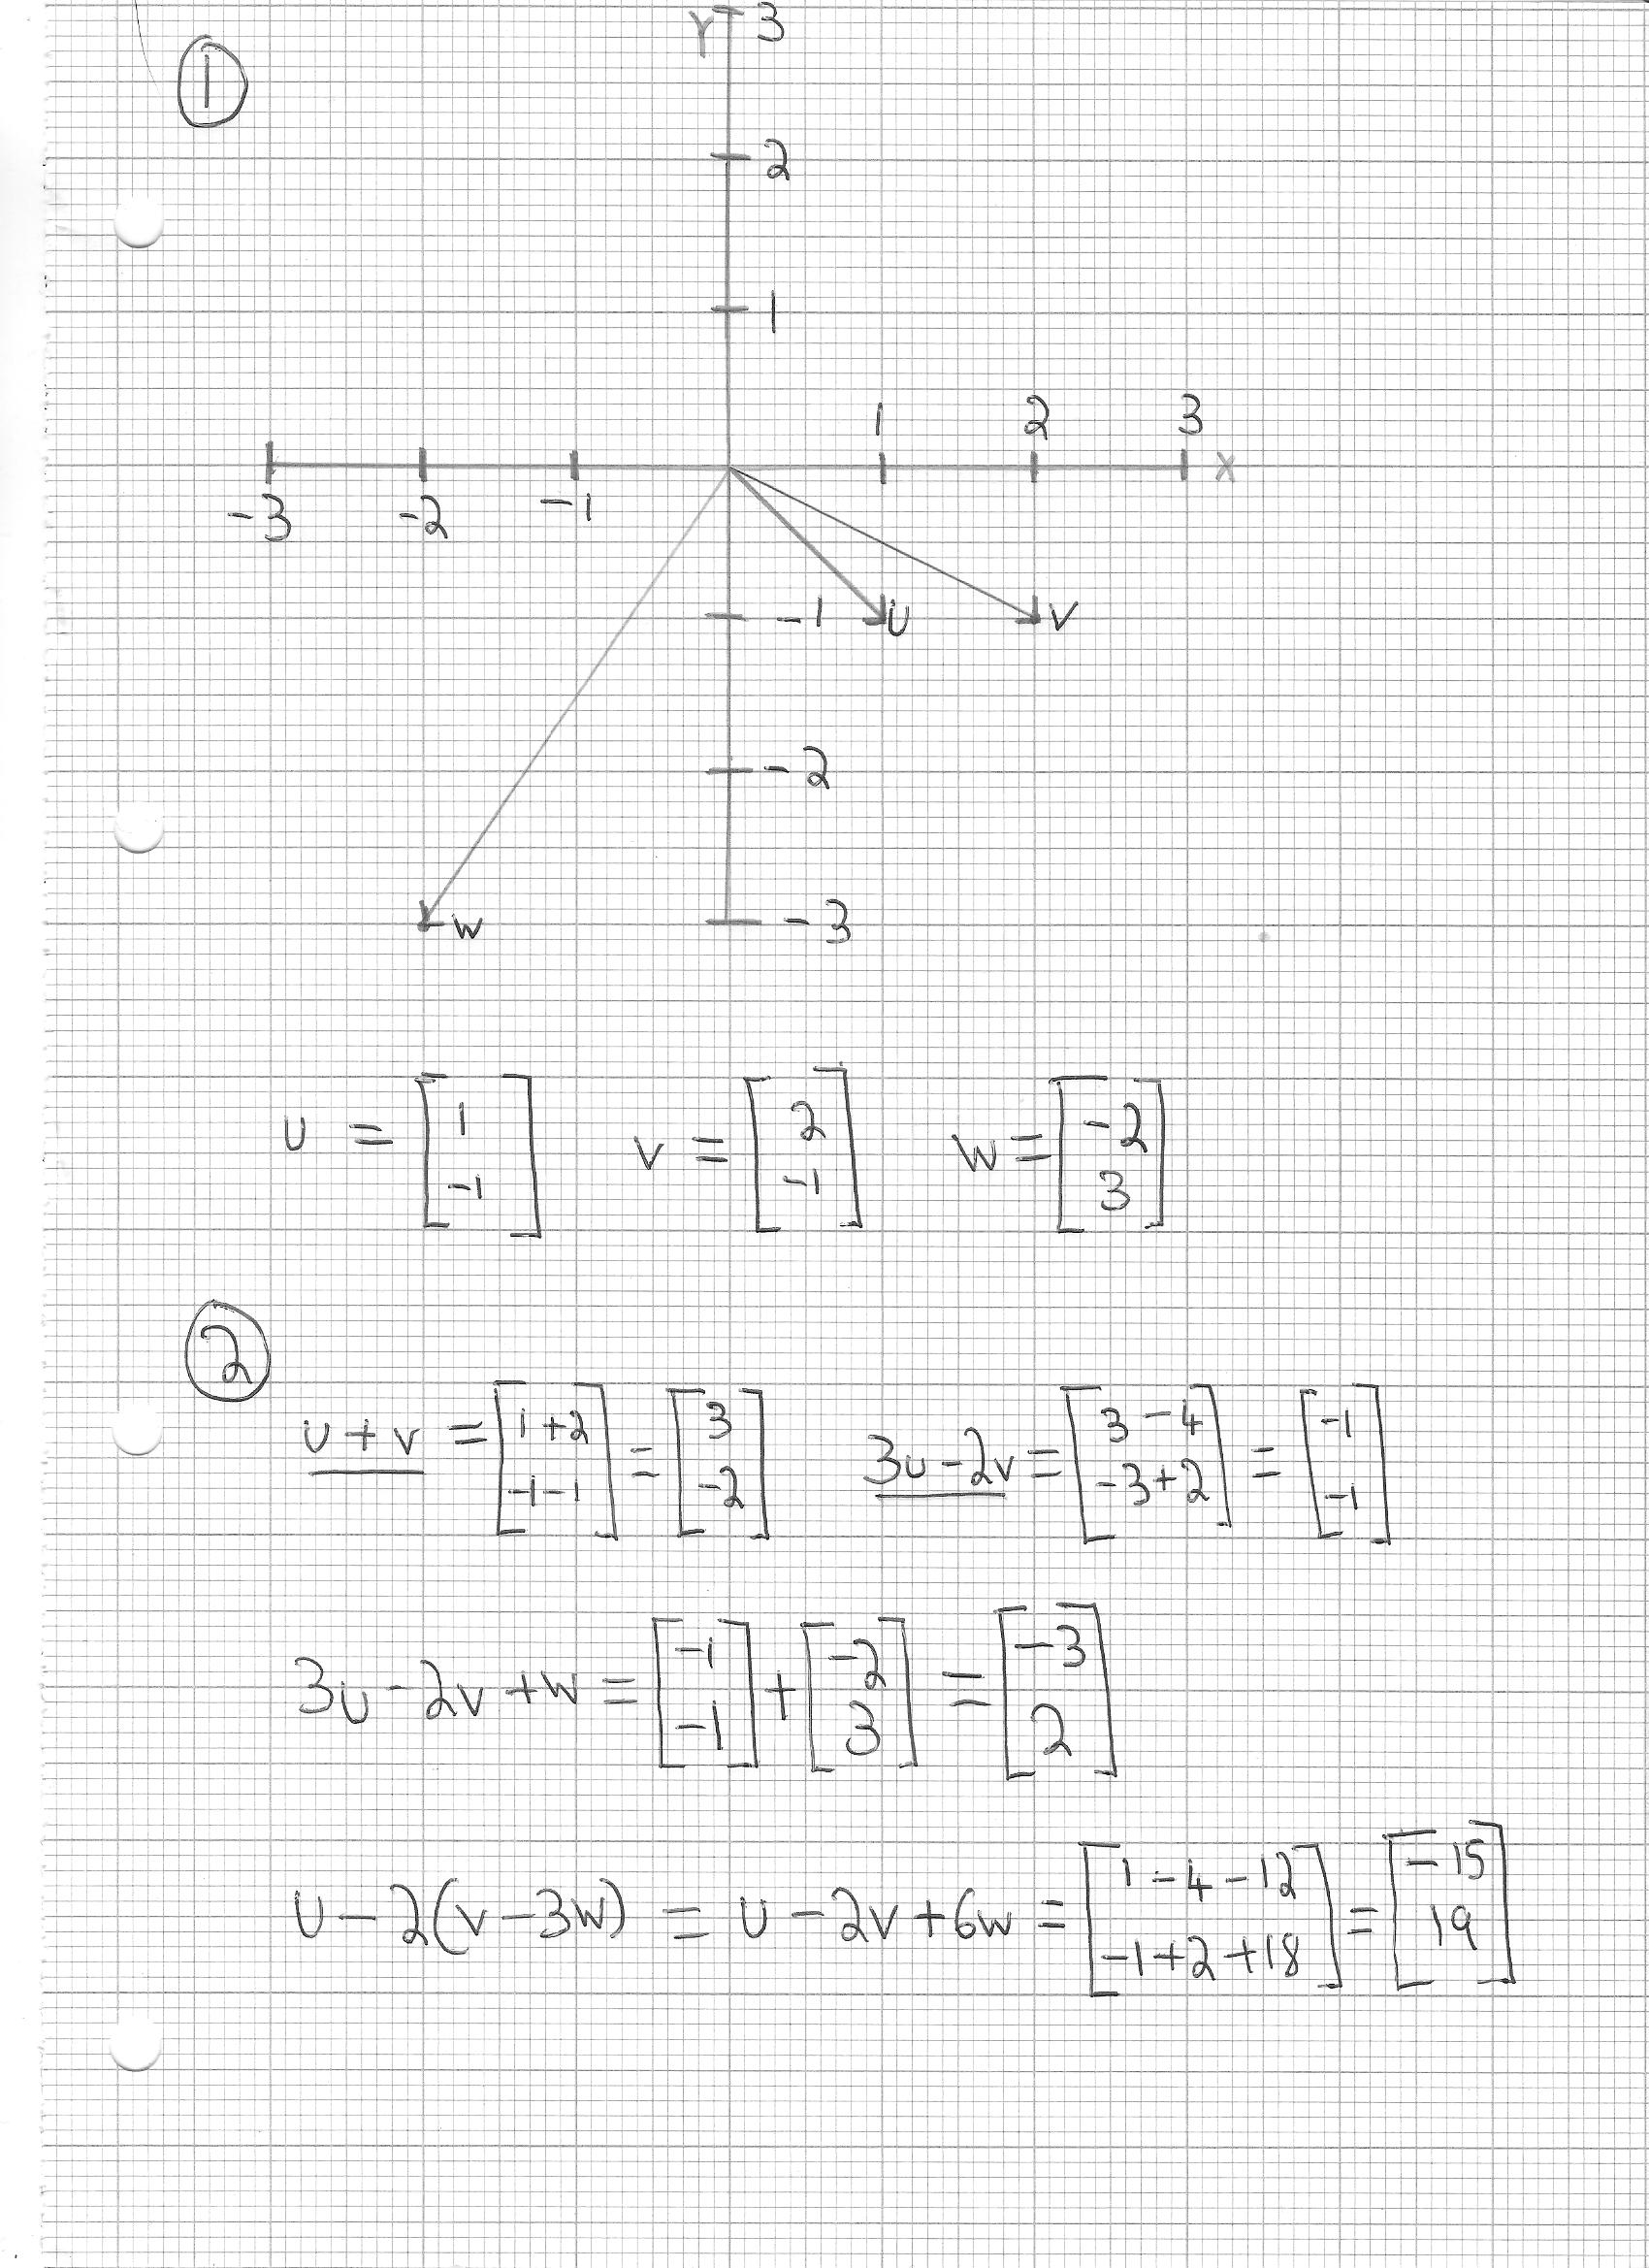 ①
Y 3
2
1
1 2 3
x
-3 -2 -1
-1 U V
-2
W -3
U = [1 -1] V = [2 -1] W = [-2 3]
②
U + V = [1+2 -1-1] = [3 -2] 3U - 2V = [3-4 -3+2] = [-1 -1]
3U - 2V + W = [-1 -1] + [-2 3] = [-3 2]
U - 2(V - 3W) = U - 2V + 6W = [1-4-12 -1+2+18] = [-15 19]